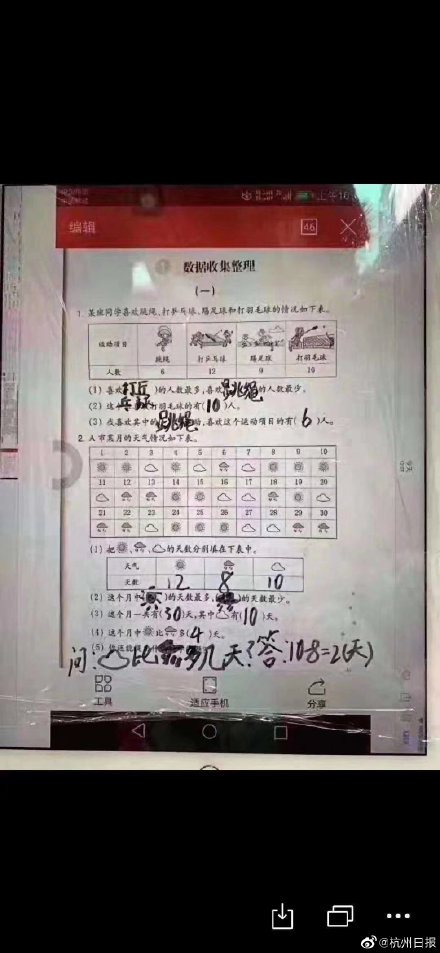 编辑
46
1 数据收集整理
(一)
1. 某班同学喜欢跳绳、打乒乓球、踢足球和打羽毛球的情况如下表。
运动项目 跳绳 打乒乓球 踢足球 打羽毛球
人数 6 12 9 10
(1) 喜欢(打乒乓球)的人数最多,喜欢跳绳的人数最少。
(2) 这 打羽毛球的有(10)人。
(3) 我喜欢其中的跳绳 动,喜欢这个运动项目的有(6)人。
2. A市某月的天气情况如下表。
1 2 3 4 5 6 7 8 9 10
11 12 13 14 15 16 17 18 19 20
21 22 23 24 25 26 27 28 29 30
(1) 把 、 、 的天数分别填在下表中。
天气
天数 12 8 10
(2) 这个月中( )的天数最多,( )的天数最少。
(3) 这个月一共有(30)天,其中 有(10)天。
(4) 这个月中 比 多(4)天。
(5)
问: 比 多几天?答:10-8=2(天)
工具 适应手机 分享
@杭州日报